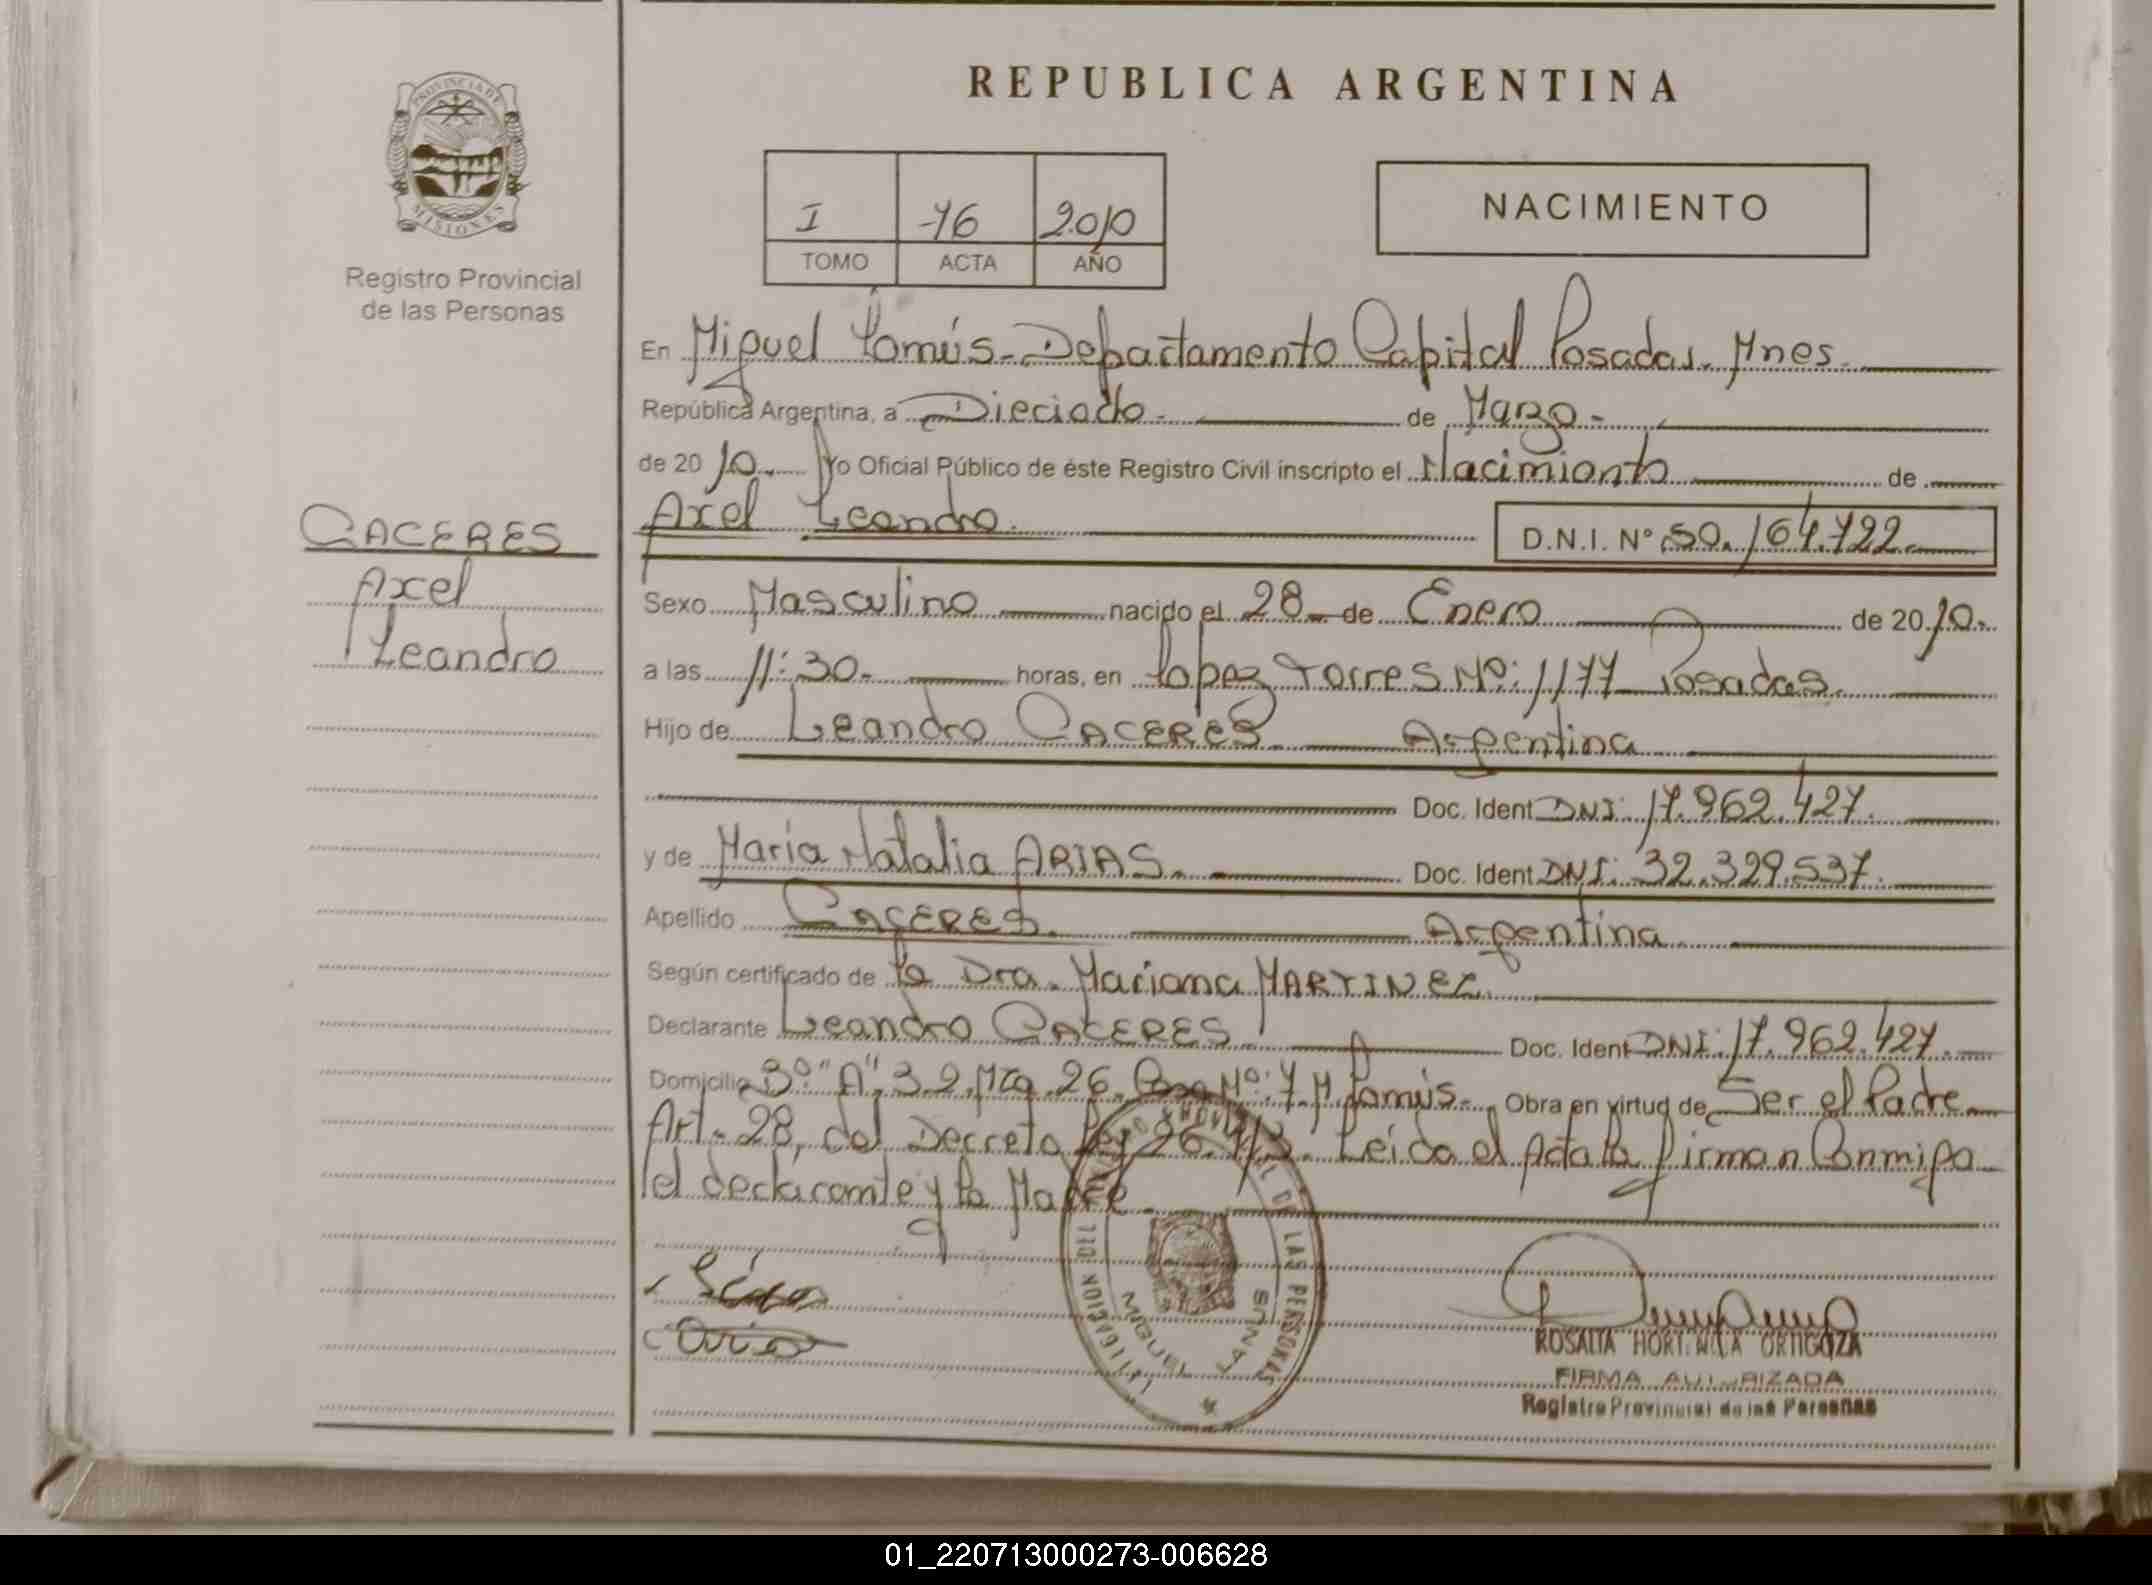 REPUBLICA ARGENTINA
PROVINCIA DE
MISIONES
Registro Provincial
de las Personas
I 76 2010
TOMO ACTA AÑO
NACIMIENTO
En Miguel Lanús - Departamento Capital Posadas. Mnes.
República Argentina, a Dieciocho. de Marzo -
de 20 10. Yo Oficial Público de éste Registro Civil inscripto el Nacimiento de
Axel Leandro. D.N.I. N° 50.164.722.
CACERES
Axel
Leandro
Sexo Masculino nacido el 28 de Enero de 20 10.
a las 11:30. horas, en Lopez Torres Nº: 1177 Posadas.
Hijo de Leandro CACERES. Argentina
Doc. Ident DNI: 17.962.427.
y de María Natalia ARIAS. Doc. Ident DNI: 32.329.537.
Apellido CACERES. Argentina
Según certificado de la Dra. Mariana MARTINEZ.
Declarante Leandro CACERES Doc. Ident DNI: 17.962.427.
Domicilio 3º "A", 32. Mza. 26. Casa Nº: 7. M. Lanús. Obra en virtud de Ser el Padre
Art. 28, del Decreto Ley Leída el Acta la firman Conmigo
el declarante y la Madre.
DELEGACION DEL REGISTRO PROVINCIAL DE LAS PERSONAS
MIGUEL LANUS
Arias
ROSALIA HORTENCIA ORTIGOZA
FIRMA AUTORIZADA
Registro Provincial de las Personas
01_220713000273-006628